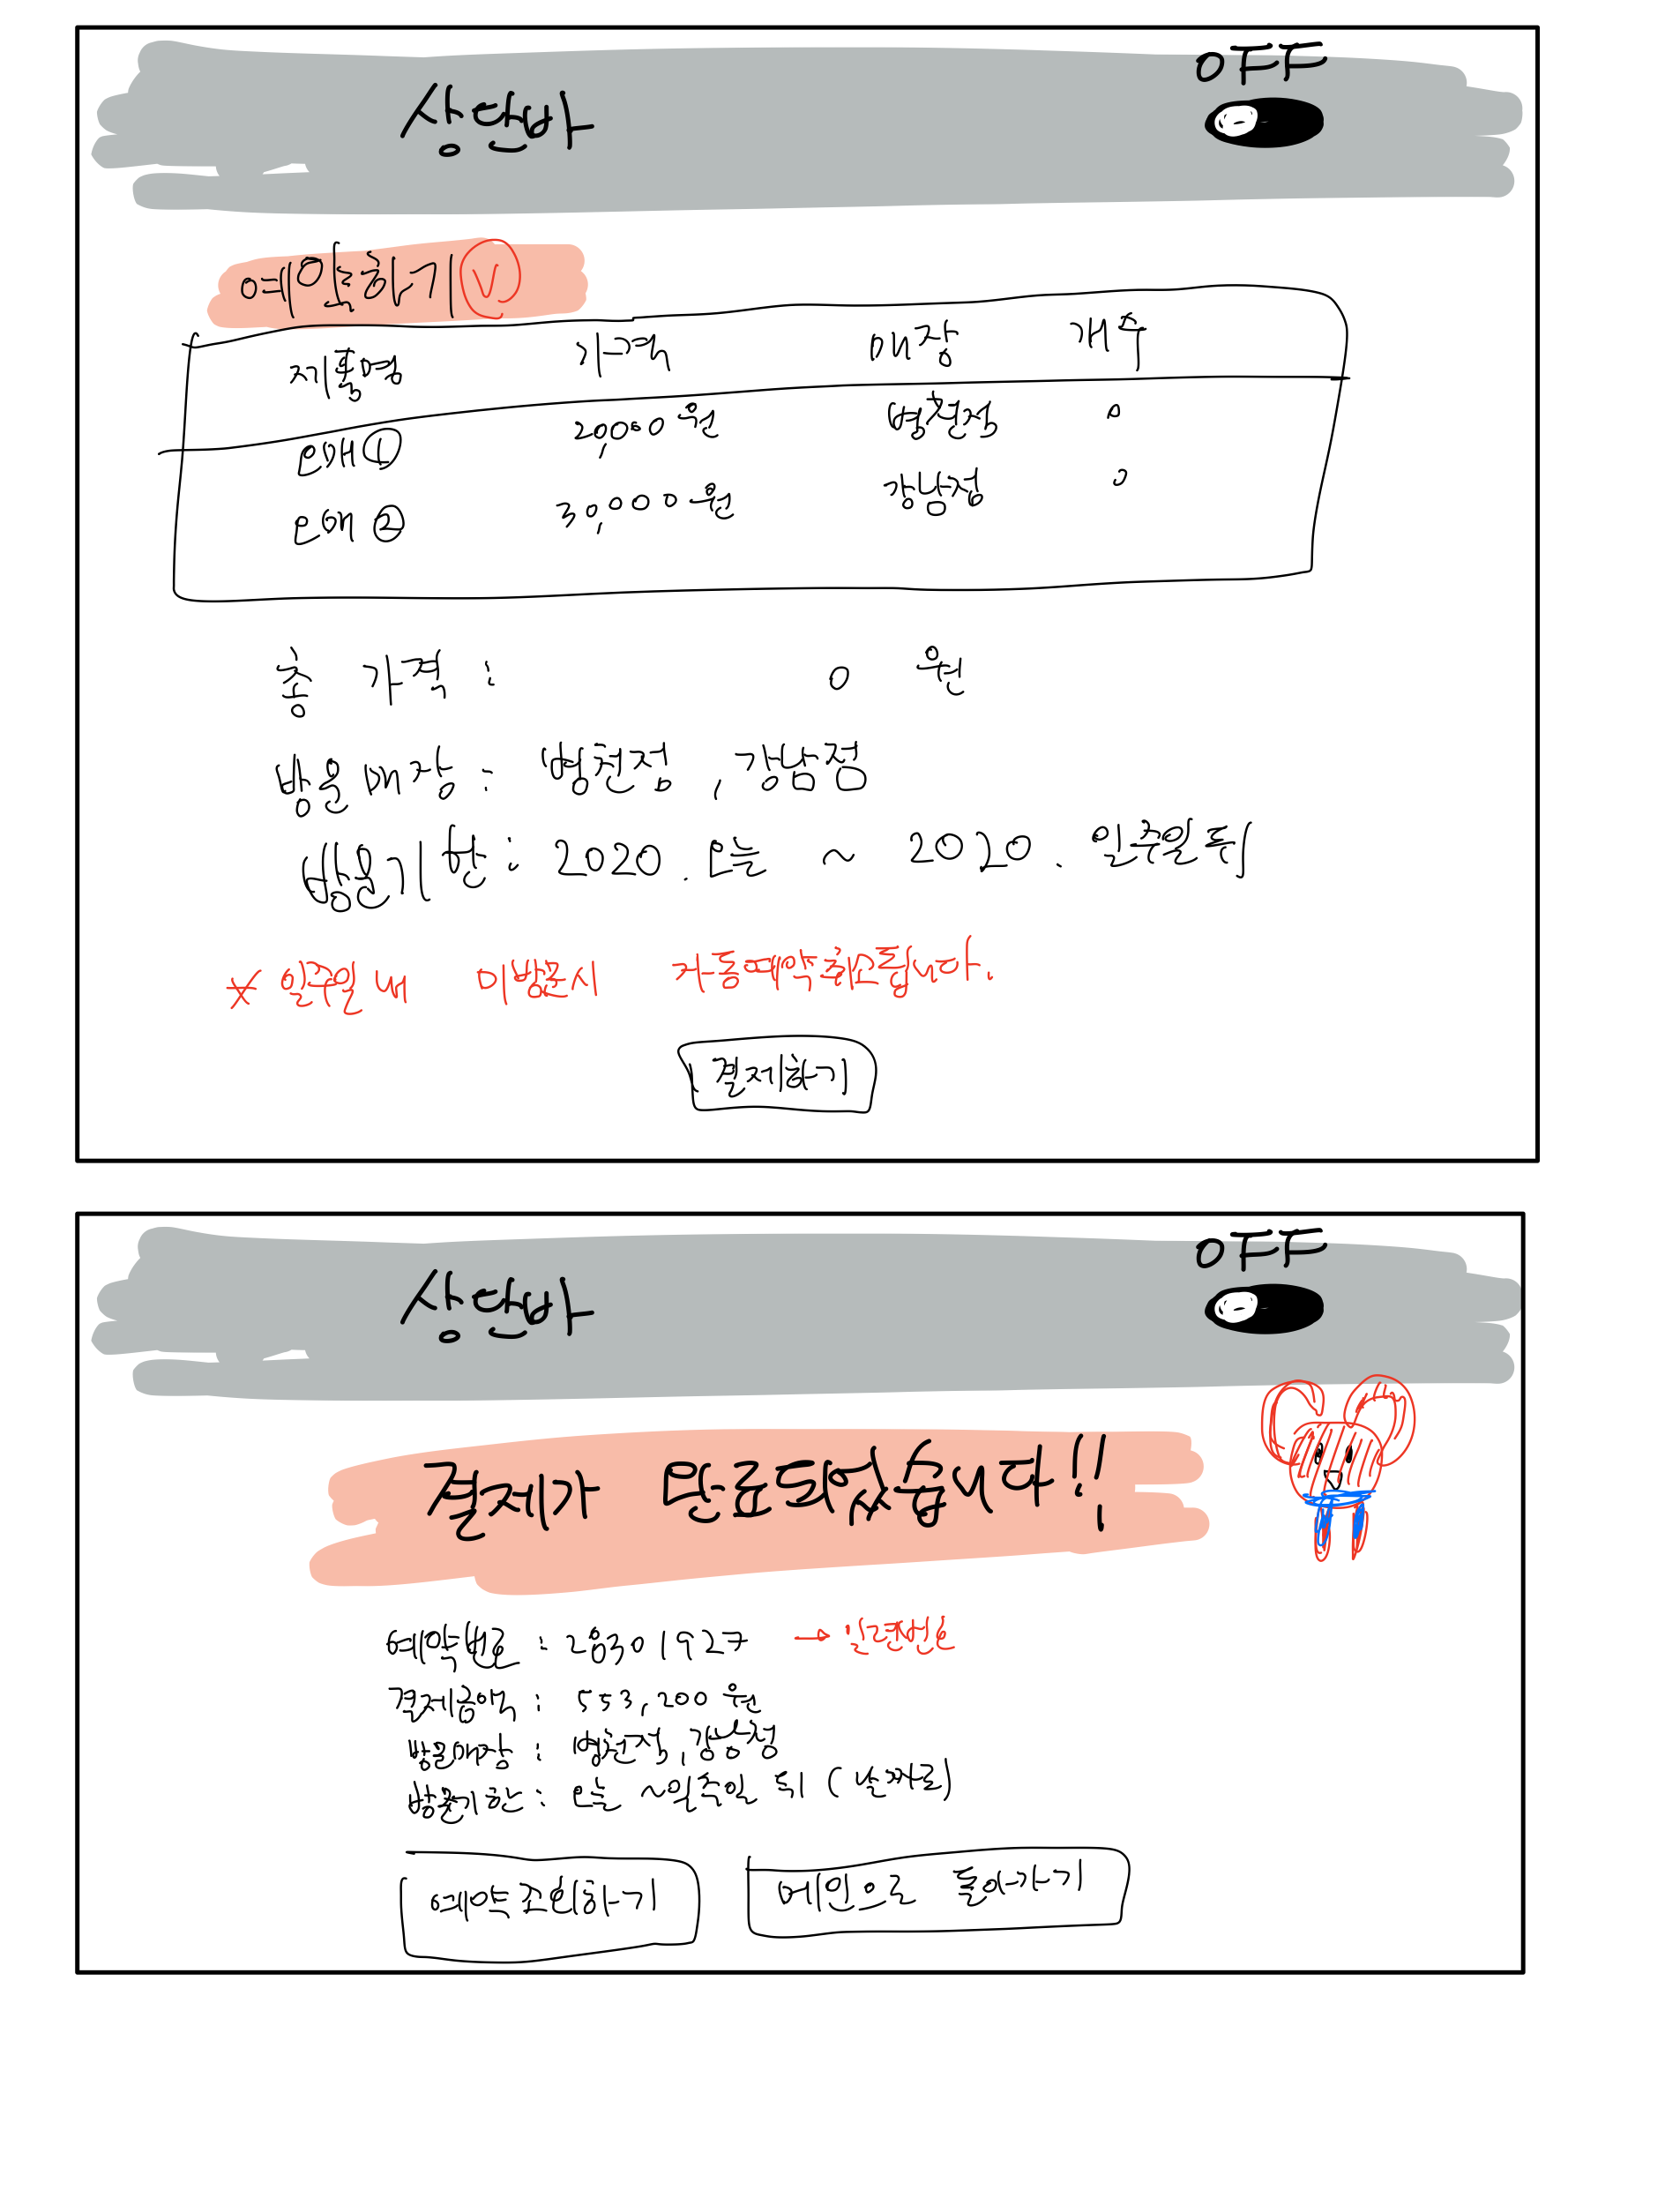 OFF
상단바
예약하기 V
제품명 가격 매장 개수
인애 ① 20,000원 병천점 0
인애 ② 30,000원 강남점 0
총 가격 : 0 원
방문매장 : 병천점, 강남점
방문기한 : 2020. 오늘 ~ 2020. 일주일 뒤
* 일주일 내 미방문시 자동예약취소됩니다.
결제하기
OFF
상단바
결제가 완료되었습니다!!
예약번호 : 28301927 → 일련번호
결제총액 : 553,200원
방문매장 : 병천점, 강남점
방문기한 : 오늘 ~ 일주일 뒤 (날짜로)
예약조회하기
메인으로 돌아가기